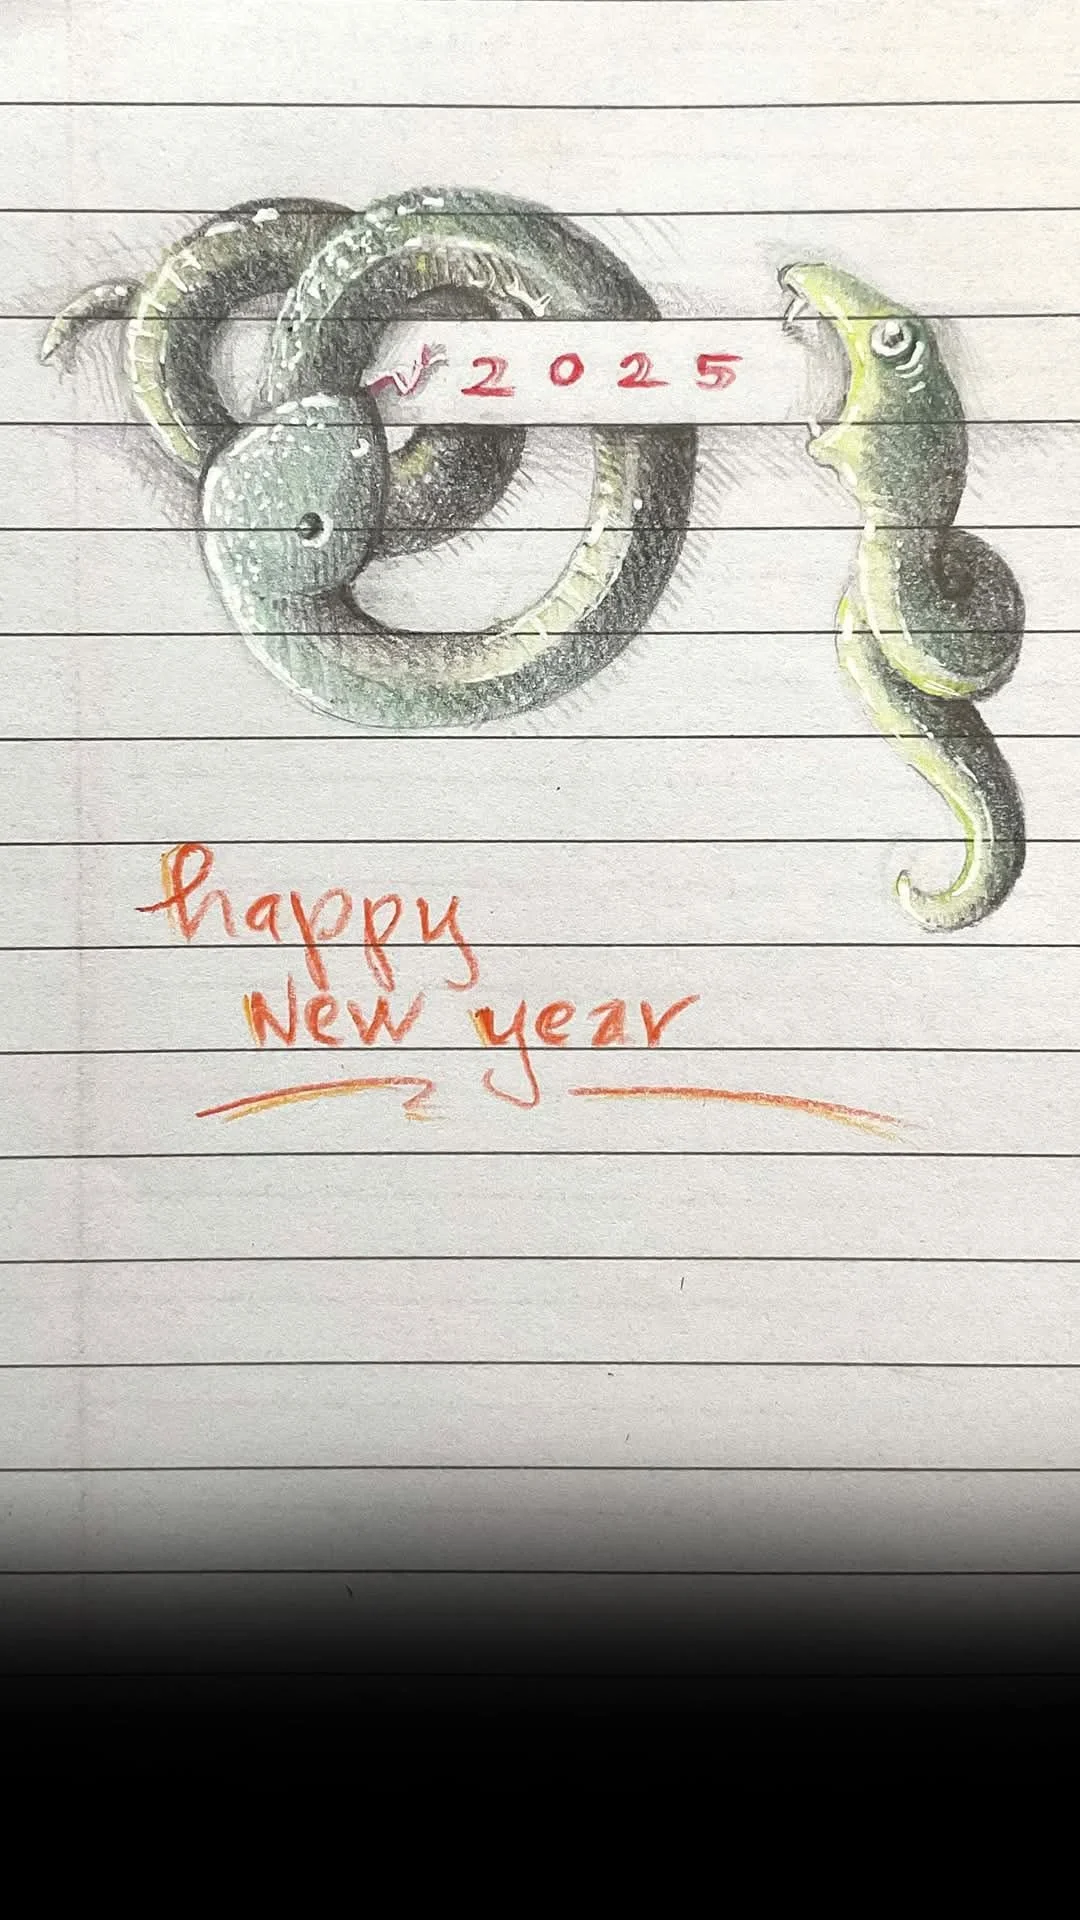 2025
happy
New year